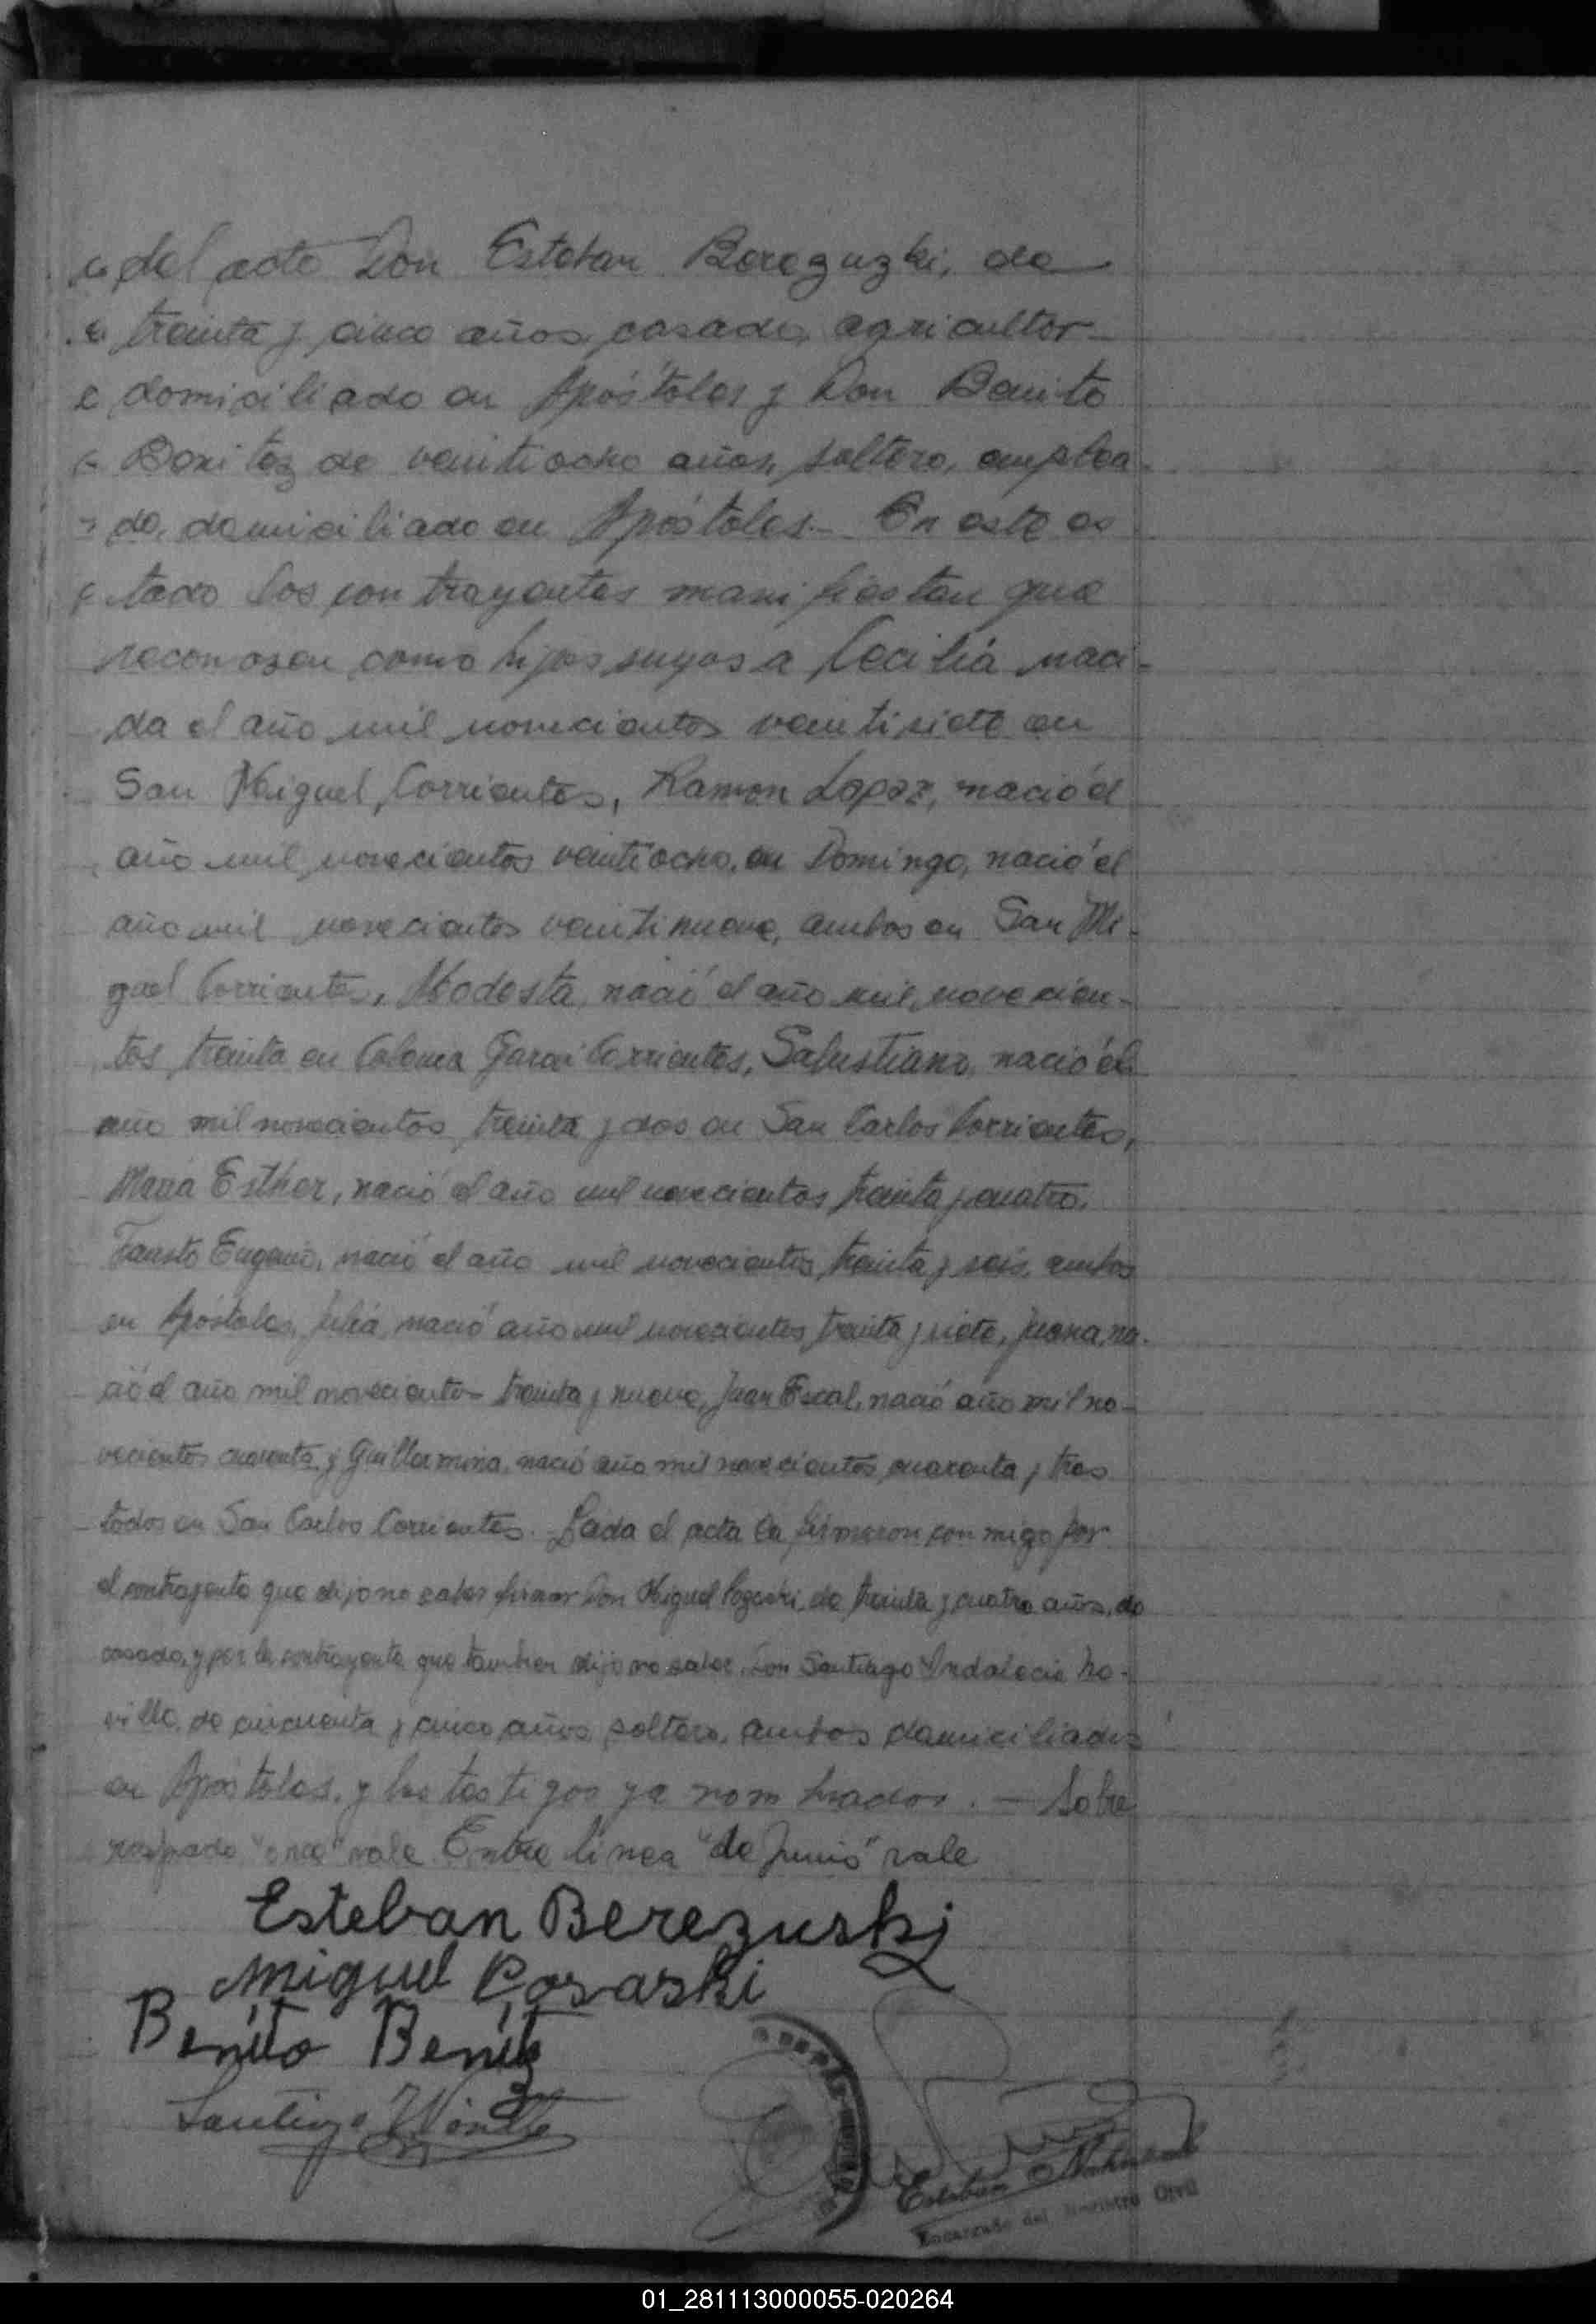 del acto Don Esteban Berezuzki, de
treinta y cinco años, casado, agricultor
domiciliado en Apóstoles y Don Benito
Benitez de veintiocho años, soltero, emplea-
do, domiciliado en Apóstoles.- En este es
tado los contrayentes manifiestan que
reconosen como hijos suyos a Cecilia naci-
da el año mil novecientos veintisiete en
San Miguel, Corrientes, Ramon Lopez, nació el
año mil novecientos veintiocho, en Domingo, nació el
año mil novecientos veintinueve, ambos en San Mi-
guel Corrientes, Modesta, nació el año mil novecien-
tos treinta en Colonia Garai Corrientes, Salustiano, nació el
año mil novecientos treinta y dos en San Carlos Corrientes,
Maria Esther, nació el año mil novecientos treinta y cuatro,
Fausto Eugenio, nació el año mil novecientos treinta y seis, ambos
en Apóstoles, Julia, nació año mil novecientos treinta y siete, Juana, na-
ció el año mil novecientos treinta y nueve, Juan nació año mil no-
vecientos cuarenta y Guillermina, nació año mil novecientos cuarenta y tres
todos en San Carlos Corrientes. Leida el acta la firmaron conmigo por
el contrayente que dijo no saber firmar Don Miguel de treinta y cuatro años, de
casado, y por la contrayente que tambien dijo no saber, Don Santiago Indalecio
de cincuenta y cinco años, soltero, ambos domiciliados
en Apóstoles, y los testigos ya nombrados. — Sobre
raspado "once" vale Entre linea "de Junio" vale
Esteban Berezuski
Miguel
Benito Benitez
Santiago
Esteban
Encargado del Registro Civil
01_281113000055-020264